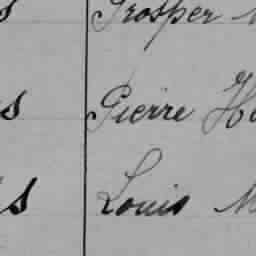 s Prosper
s Pierre
s Louis